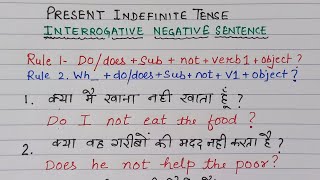 PRESENT INDEFINITE TENSE
INTERROGATIVE NEGATIVE SENTENCE
Rule 1- Do/does + Sub + not + verb1 + object ?
Rule 2. Wh_ + do/does + Sub + not + V1 + object ?
1. क्या मैं खाना नहीं खाता हूँ ?
Do I not eat the food ?
2. क्या वह गरीबों की मदद नहीं करता है ?
Does he not help the poor?